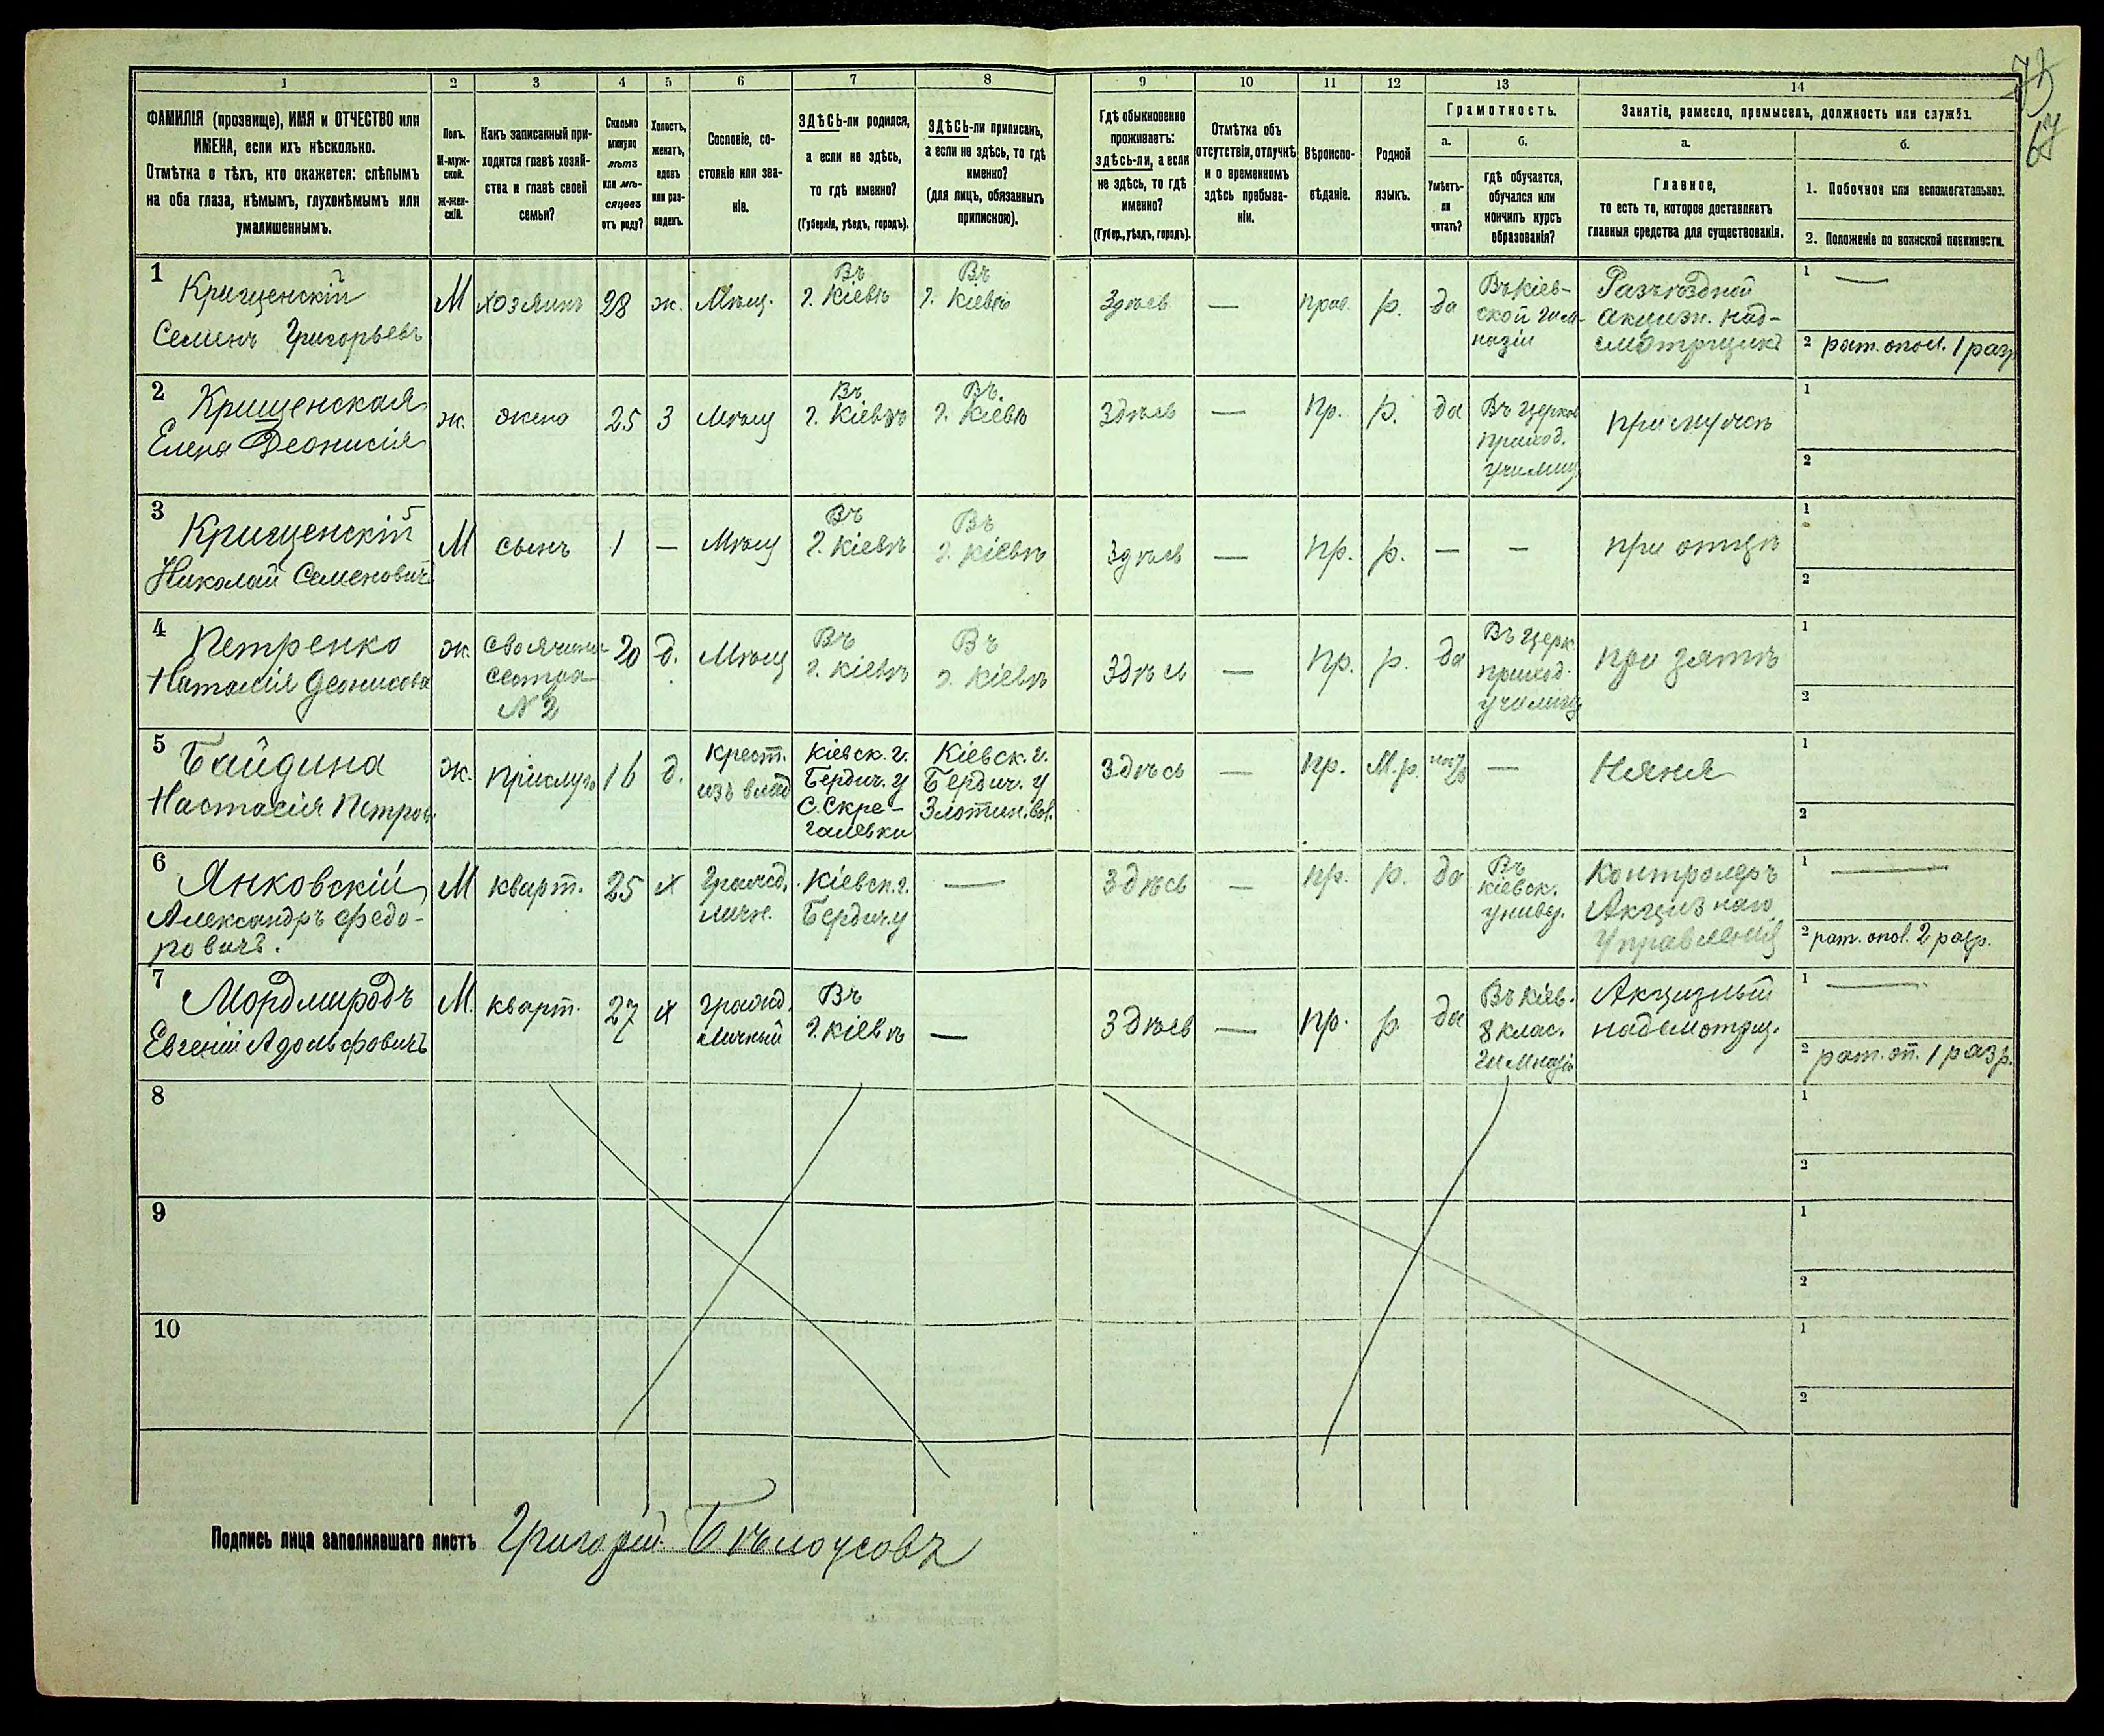 75
67
1 2 3 4 5 6 7 8 9 10 11 12 13 14
ФАМИЛІЯ (прозвище), ИМЯ и ОТЧЕСТВО или
ИМЕНА, если ихъ нѣсколько.
Отмѣтка о тѣхъ, кто окажется: слѣпымъ
на оба глаза, нѣмымъ, глухонѣмымъ или
умалишеннымъ.
Полъ.
М-муж-
ской.
Ж-жен-
скій.
Какъ записанный при-
ходится главѣ хозяй-
ства и главѣ своей
семьи?
Сколько
минуло
лѣтъ
или мѣ-
сяцевъ
отъ роду?
Холостъ,
женатъ,
вдовъ
или раз-
веденъ.
Сословіе, со-
стояніе или зва-
ніе.
ЗДѢСЬ-ли родился,
а если не здѣсь,
то гдѣ именно?
(Губернія, уѣздъ, городъ).
ЗДѢСЬ-ли приписанъ,
а если не здѣсь, то гдѣ
именно?
(для лицъ, обязанныхъ
припискою).
Гдѣ обыкновенно
проживаетъ:
здѣсь-ли, а если
не здѣсь, то гдѣ
именно?
(Губер., уѣздъ, городъ).
Отмѣтка объ
отсутствіи, отлучкѣ
и о временномъ
здѣсь пребыва-
ніи.
Вѣроиспо-
вѣданіе.
Родной
языкъ.
Грамотность.
а.
Умѣетъ-
ли
читать?
б.
гдѣ обучается,
обучался или
кончилъ курсъ
образованія?
Занятіе, ремесло, промыселъ, должность или служба.
а.
Главное,
то есть то, которое доставляетъ
главныя средства для существованія.
б.
1. Побочное или вспомогательное.
2. Положеніе по воинской повинности.
1
Крищенскій
Семенъ Григорьевъ
М
хозяинъ
28
ж.
Мѣщ.
Въ
г. Кіевѣ
Въ
г. Кіевѣ
Здѣсь
—
прав.
р.
да
Въ Кіев-
ской гим-
назіи
Разъѣздной
акцизн. над-
смотрщикъ
1 —
2 рат. опол. 1 разр.
2
Крищенская
Елена Деонисія
ж.
жена
25
З
Мѣщ
Въ
г. Кіевѣ
Въ.
г. Кіевѣ
Здѣсь
—
пр.
р.
да
Въ церков
приход.
училищ.
при мужѣ
1
2
3
Крищенскій
Николай Семеновичъ
М
сынъ
1
—
Мѣщ
Въ
г. Кіевѣ
Въ
г. Кіевѣ
Здѣсь
—
пр.
р.
—
—
при отцѣ
1
2
4
Петренко
Наталія Деонисова
ж.
своячина
сестра
N 2
20
д.
Мѣщ
Въ
г. Кіевѣ
Въ
г. Кіевѣ
Здѣсь
—
пр.
р.
да
Въ церк
приход.
училищ
при зятѣ
1
2
5
Байдина
Настасія Петров
ж.
прислуга
16
д.
Крест.
изъ влад
Кіевск. г.
Бердич. у
С. Скре-
галевки
Кіевск. г.
Бердич. у
Злотин. вол.
Здѣсь
—
пр.
М. р.
—
Няня
1
2
6
Янковскій
Александръ Федо-
ровичъ.
М
кварт.
25
х
гражд.
личн.
Кіевск. г.
Бердич. у
—
Здѣсь
—
пр.
р.
да
Въ
Кіевск.
универ.
Контролеръ
Акцизнаго
Управленія
1 —
2 рат. опол. 2 разр.
7
Мордмиродъ
Евгеній Адольфовичъ
М.
кварт.
27
х
гражд.
личный
Въ
г. Кіевѣ
—
Здѣсь
—
пр.
р.
да
Въ Кіев.
8 клас.
гимназіи
Акцизный
надсмотрщ.
1 —
2 рат. оп. 1 разр.
8
1
2
9
1
2
10
1
2
Подпись лица заполнявшаго листъ Григорій Бѣлоусовъ